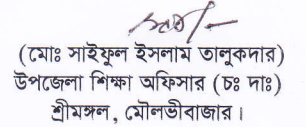 (মোঃ সাইফুল ইসলাম তালুকদার)
উপজেলা শিক্ষা অফিসার (চঃ দাঃ)
শ্রীমঙ্গল, মৌলভীবাজার।